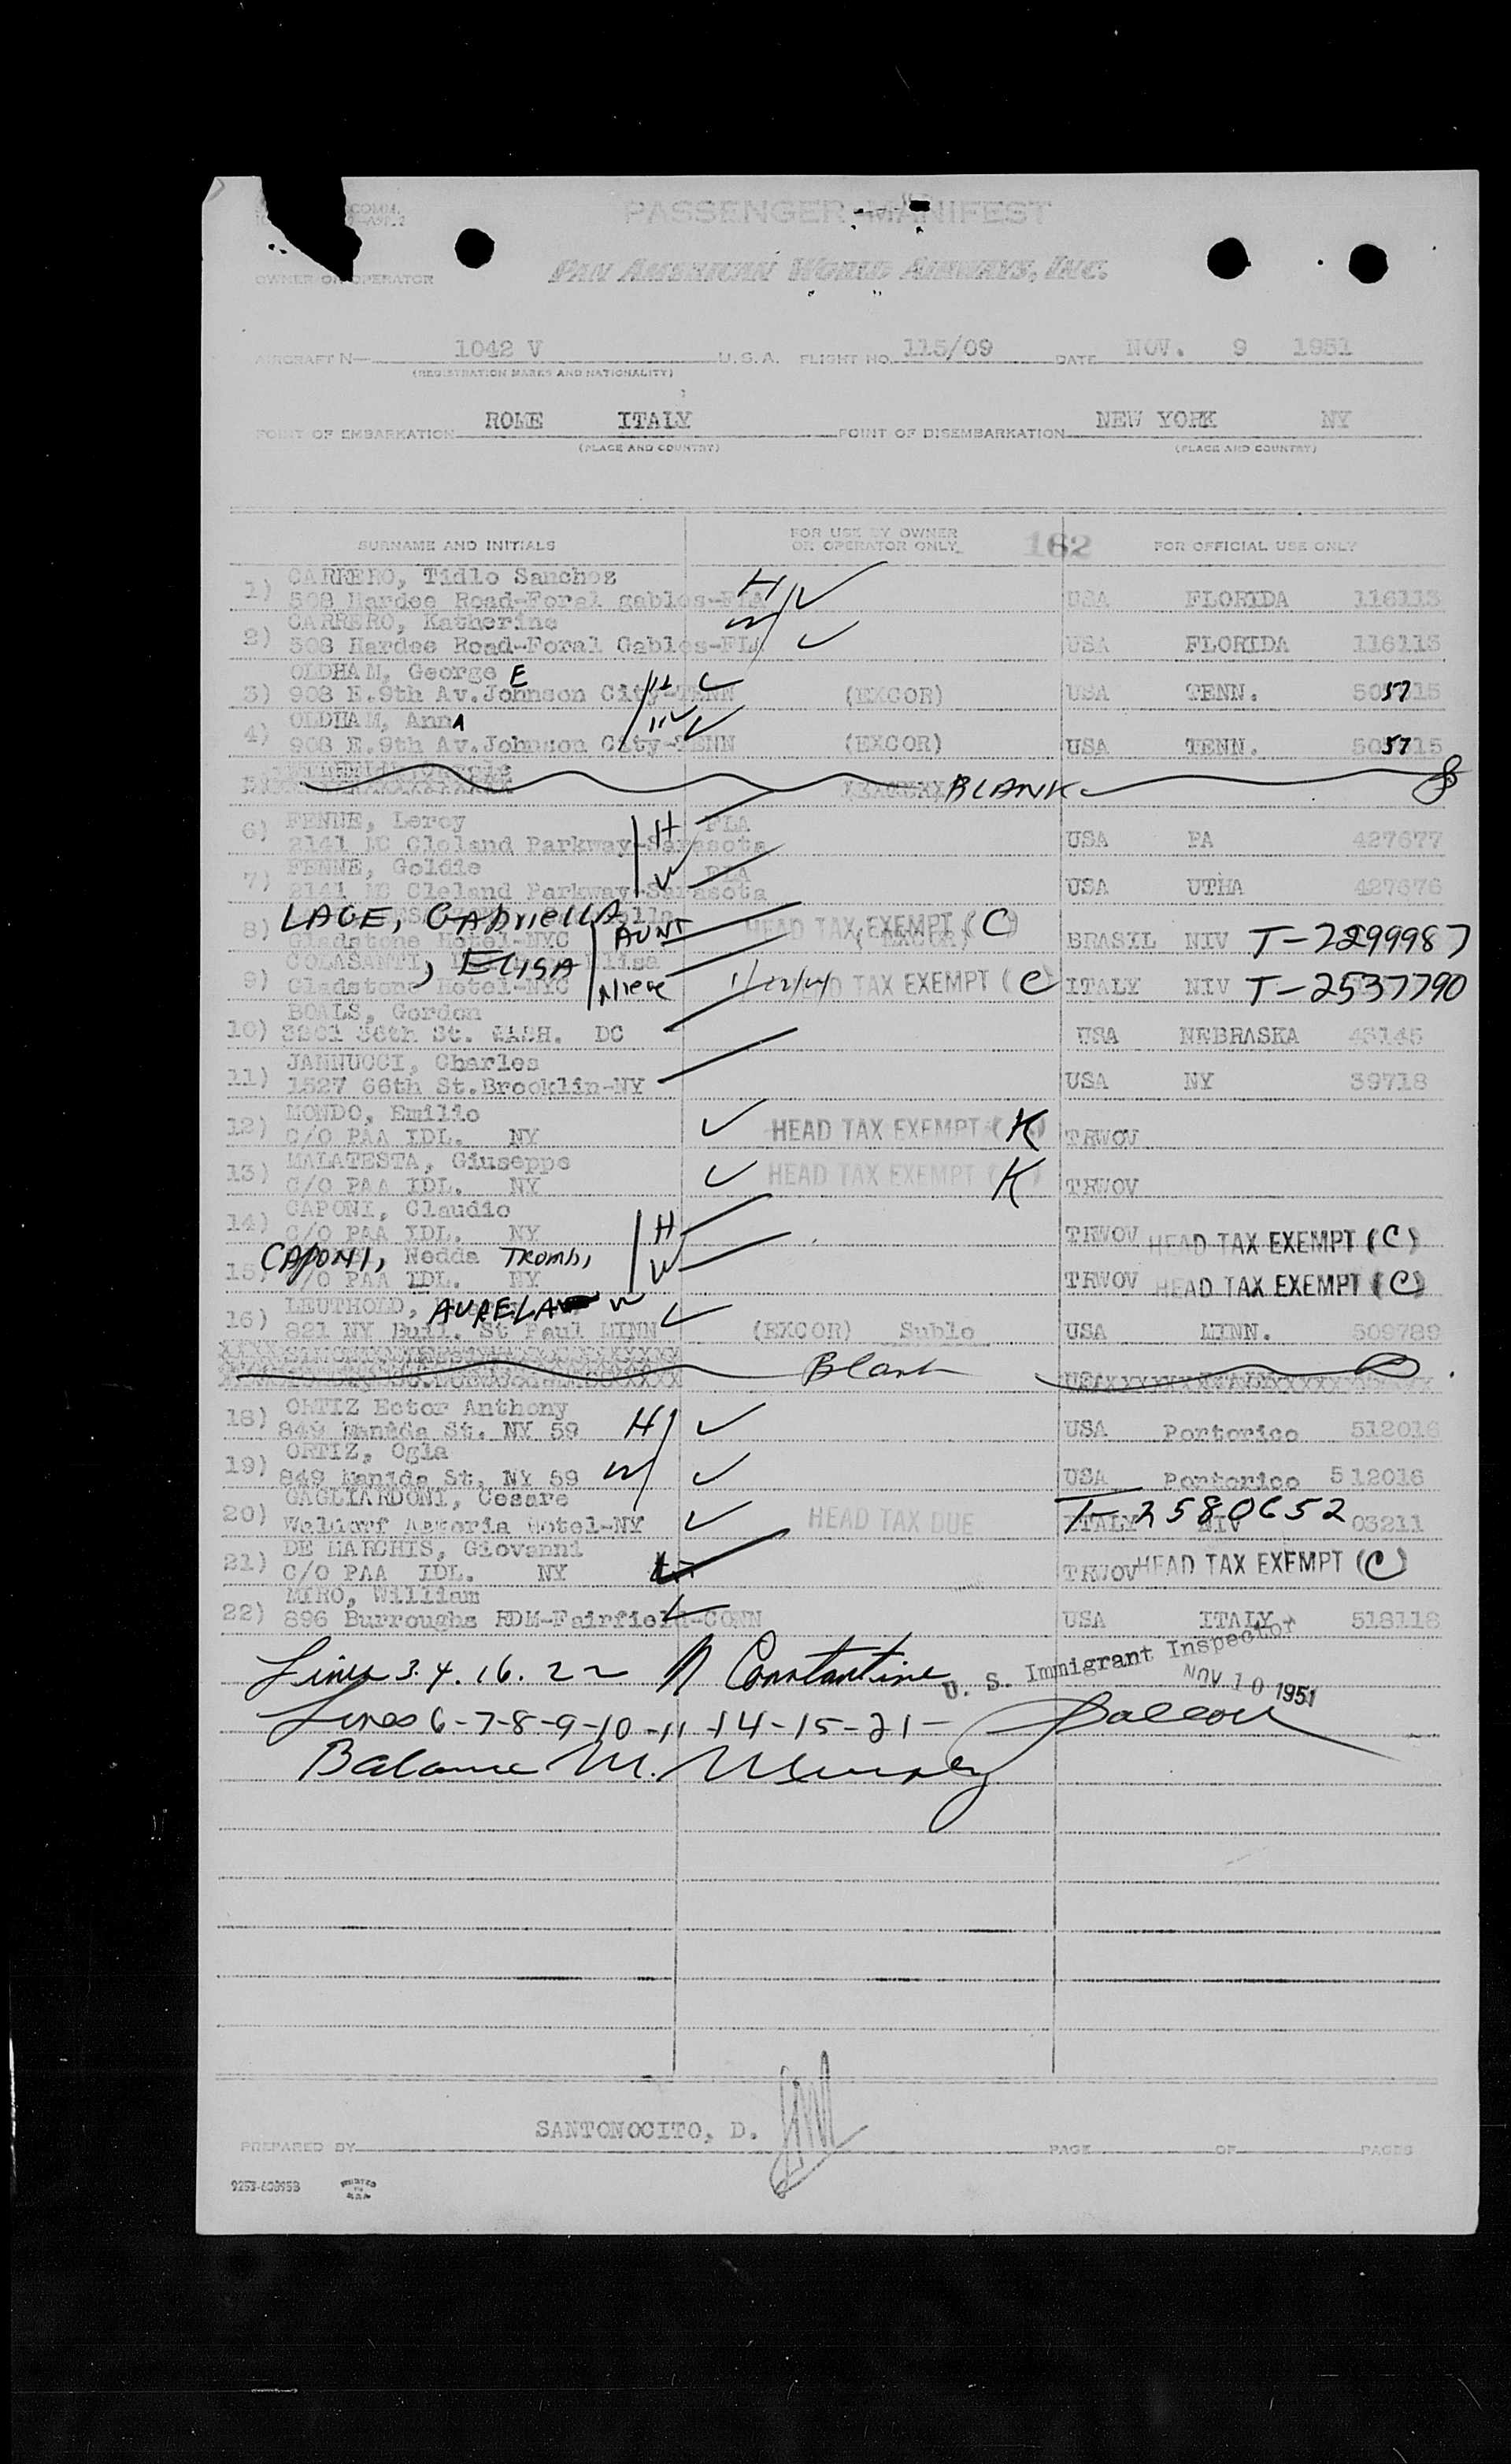 COMM.
PASSENGER MANIFEST
OWNER OR OPERATOR PAN AMERICAN WORLD AIRWAYS, INC.
AIRCRAFT N— 1042 V U.S.A. FLIGHT NO. 115/09 DATE NOV. 9 1951
(REGISTRATION MARKS AND NATIONALITY)
POINT OF EMBARKATION ROME ITALY POINT OF DISEMBARKATION NEW YORK NY
(PLACE AND COUNTRY) (PLACE AND COUNTRY)
SURNAME AND INITIALS FOR USE BY OWNER OR OPERATOR ONLY 162 FOR OFFICIAL USE ONLY
CARRERO, Tidlo Sanchez H
1) 508 Hardee Road-Foral gables-FLA USA FLORIDA 116113
CARRERO, Katherine W
2) 508 Hardee Road-Foral Gables-FLA USA FLORIDA 116113
OLDHAM, George E
3) 908 E.9th Av.Johnson City-TENN (EXCOR) USA TENN. 57
OLDHAM, AnnA
4) 908 E.9th Av.Johnson City-TENN (EXCOR) USA TENN. 57
BLANK
FENNE, Leroy H FLA
6) 2141 MC Cleland Parkway-Sarasota USA PA 427677
FENNE, Goldie W FLA
7) 2141 MC Cleland Parkway-Sarasota USA UTHA 427676
LAGE, GAbriellA AUNT HEAD TAX EXEMPT (C)
8) Gladstone Hotel-NYC (EXCOR) BRASIL NIV T-2299987
COLASANTI, ELISA
9) Gladstone Hotel-NYC Niece HEAD TAX EXEMPT (C ITALY NIV T-2537790
BOALS, Gordon
10) 3201 36th St. WASH. DC USA NEBRASKA 43145
JANNUCCI, Charles
11) 1527 66th St.Brooklin-NY USA NY 39718
MONDO, Emilio
12) C/O PAA IDL. NY HEAD TAX EXEMPT (K) TRWOV
MALATESTA, Giuseppe
13) C/O PAA IDL. NY HEAD TAX EXEMPT (K) TRWOV
CAPONI, Claudio
14) C/O PAA IDL. NY H TRWOV HEAD TAX EXEMPT (C)
CAPONI, Nedda Trombi
15) C/O PAA IDL. NY W TRWOV HEAD TAX EXEMPT (C)
LEUTHOLD, AURELA W
16) 821 NY Buil. St Paul MINN (EXCOR) Sublo USA MINN. 509789
Blank
ORTIZ Ector Anthony
18) 849 Manida St. NY 59 H USA Portorico 512016
ORTIZ, Ogla
19) 849 Manida St. NY 59 W USA Portorico 512016
GAGLIARDONI, Cesare T-2580652
20) Waldorf Astoria Hotel-NY HEAD TAX DUE ITALY NIV 03211
DE MARCHIS, Giovanni
21) C/O PAA IDL. NY TRWOV HEAD TAX EXEMPT (C)
MIRO, William
22) 896 Burroughs RDM-Fairfield-CONN USA ITALY 518118
Lines 3.4.16.22 N Constantine U. S. Immigrant Inspector
NOV 10 1951
Lines 6-7-8-9-10-11-14-15-21-
Balance M. Murphy
SANTONOCITO, D.
PREPARED BY PAGE OF PAGES
PRINTED IN U.S.A.